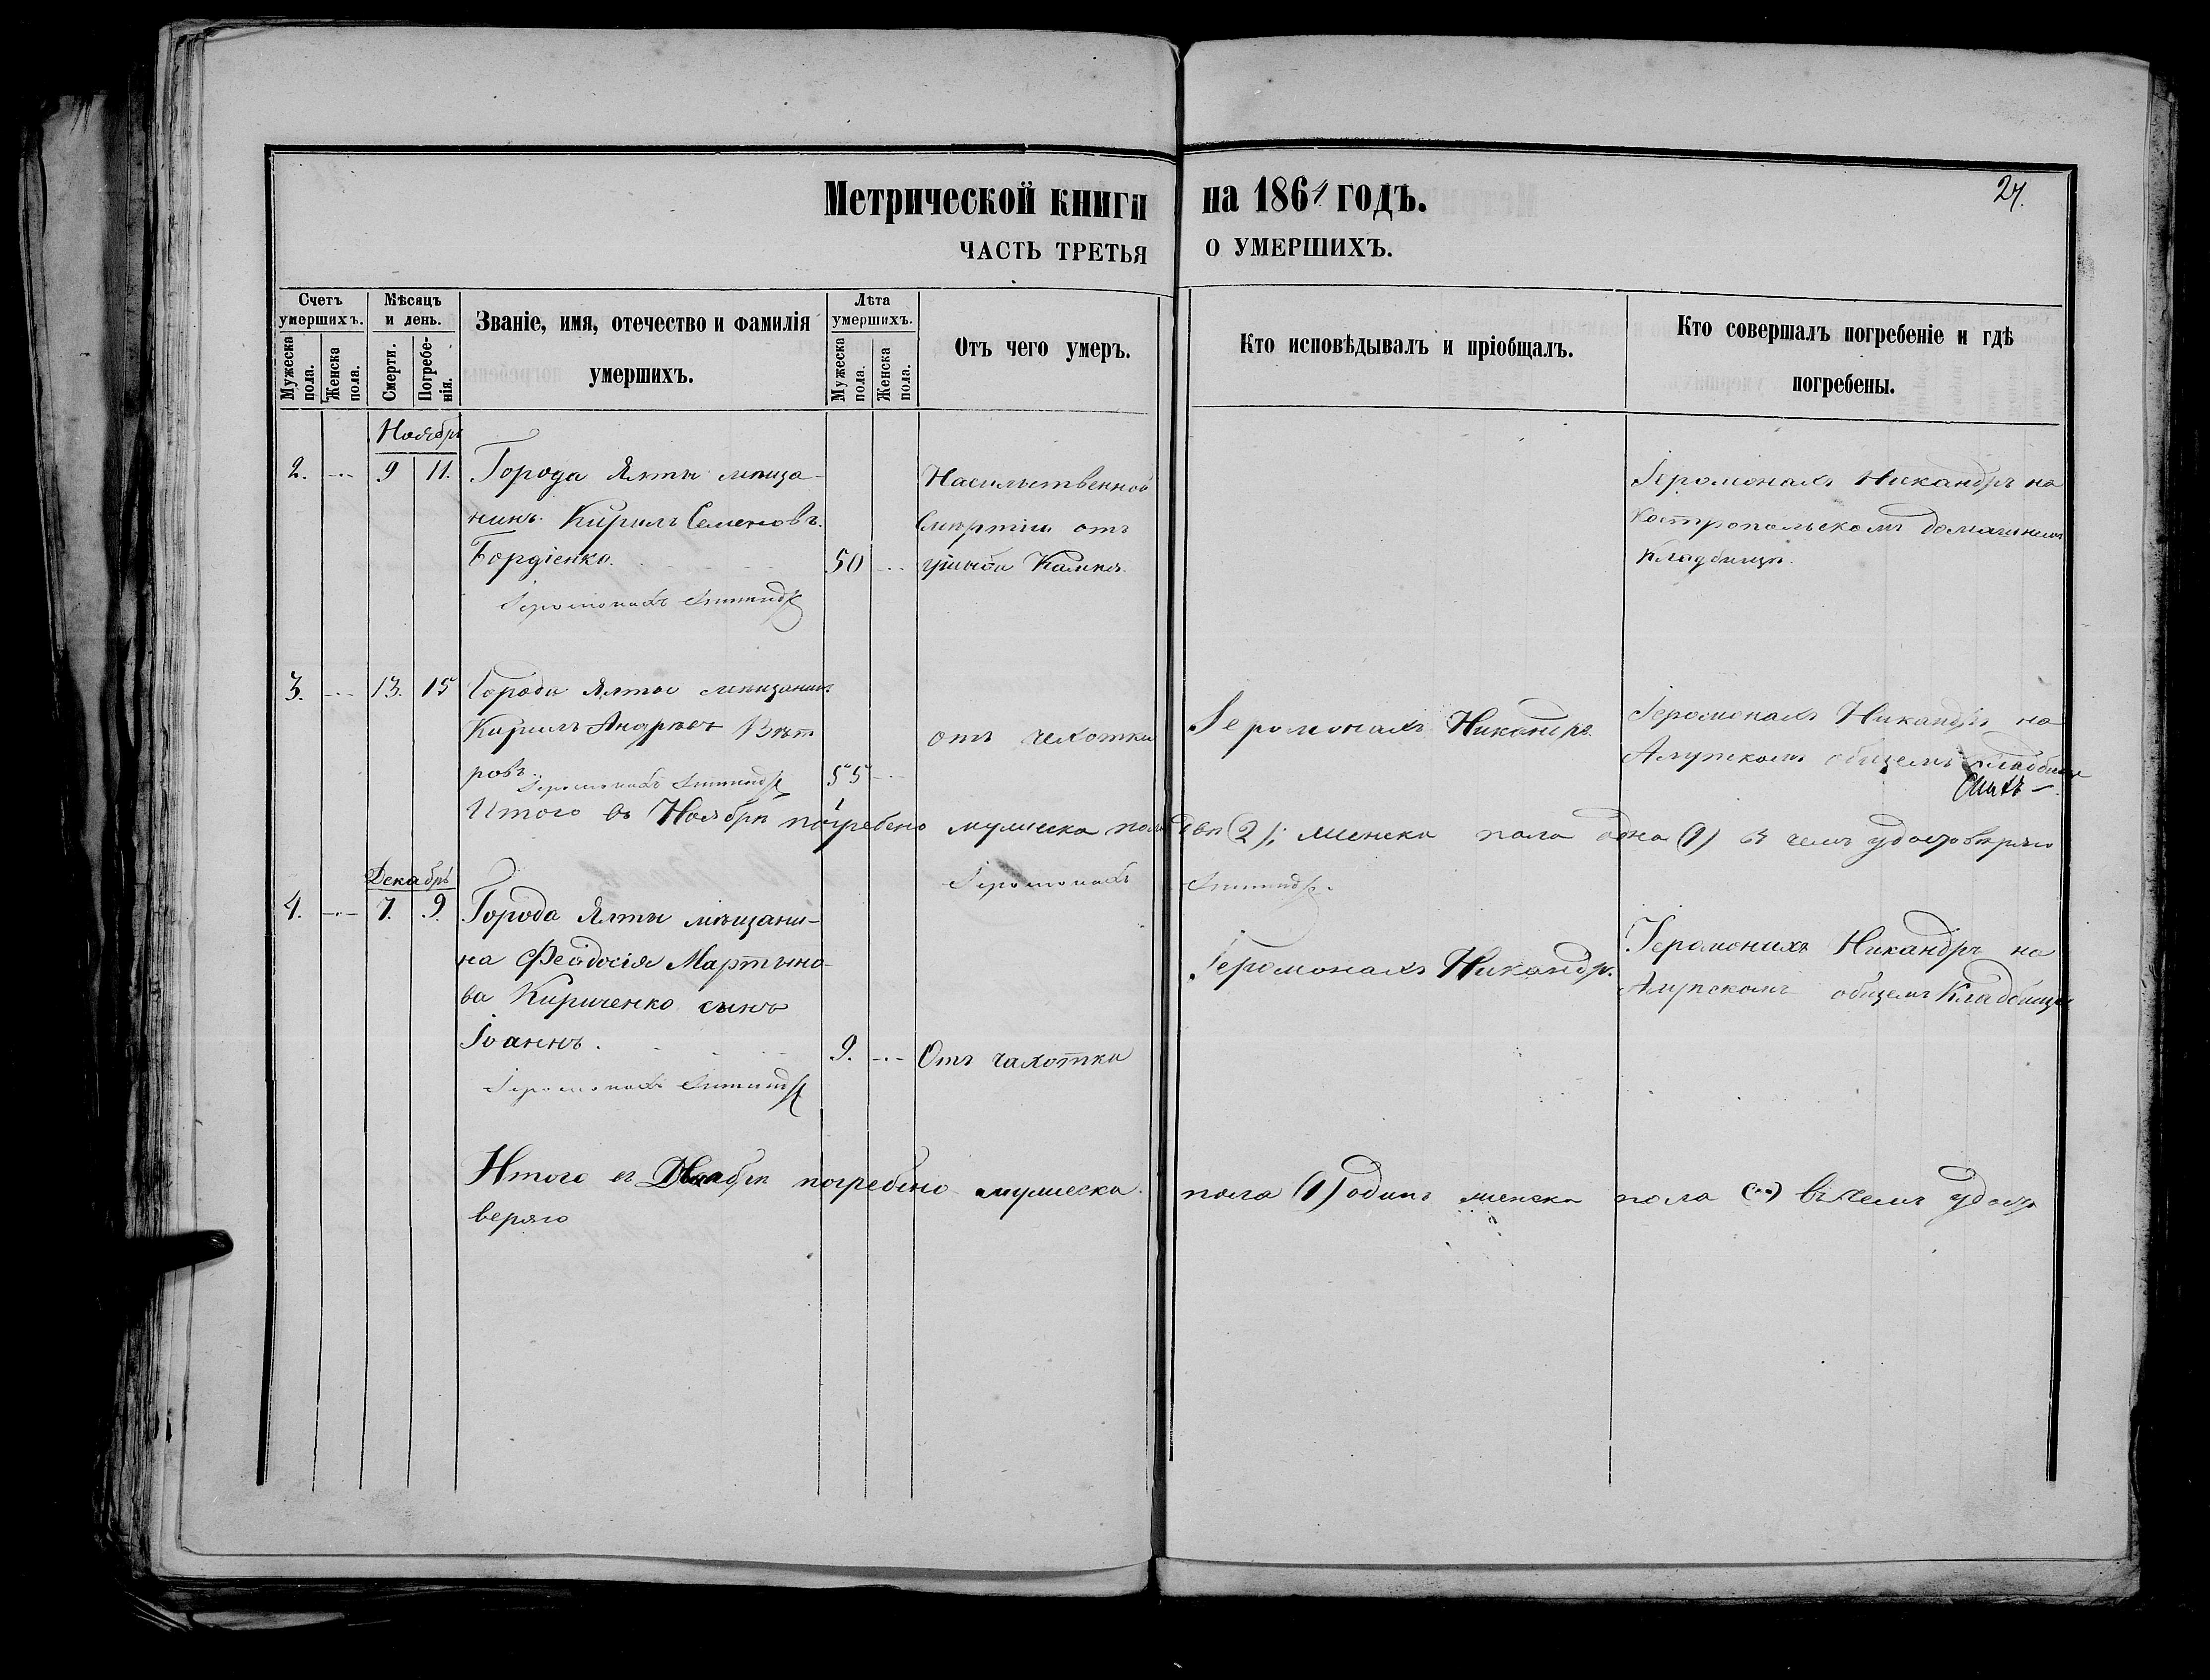 27.
Метрической книги на 1864 годъ.
ЧАСТЬ ТРЕТЬЯ О УМЕРШИХЪ.
Счетъ умершихъ.
Мужеска пола.
Женска пола.
Мѣсяцъ и день.
Смерти.
Погребенія.
Званіе, имя, отечество и фамилія
умершихъ.
Лѣта умершихъ.
Мужеска пола.
Женска пола.
Отъ чего умеръ.
Кто исповѣдывалъ и пріобщалъ.
Кто совершалъ погребеніе и гдѣ
погребены.
Ноябрь
2. 9 11. Города Ялты мѣща-
нинъ Кирилъ Семеновъ
Бордіенко. 50
Іеромонахъ
Насильственной
смертію отъ
камня
Іеромонахъ Никандръ на
Кастропольскомъ домашнемъ
кладбищѣ.
3. 13. 15 Города Ялты мѣщанинъ
Кирилъ Андреев
ровъ. 55
Іеромонахъ
отъ чехотки
Іеромонахъ Никандръ.
Іеромонахъ Никандръ на
общемъ кладбище
Итого въ Ноябрѣ погребено мужеска пола два (2); женска пола одна (1) въ чемъ удостовѣряю
Іеромонахъ
Декабрь
4. 7. 9. Города Ялты мѣщани-
на Феодосія Мартыно-
ва Кириченко сынъ
Іоаннъ. 9. Отъ чахотки
Іеромонахъ
Іеромонахъ Никандръ.
Іеромонахъ Никандръ на
общемъ Кладбище
Итого въ Декабрѣ погребено мужеска пола (1) одинъ женска пола (--) въ чемъ удосто
веряю